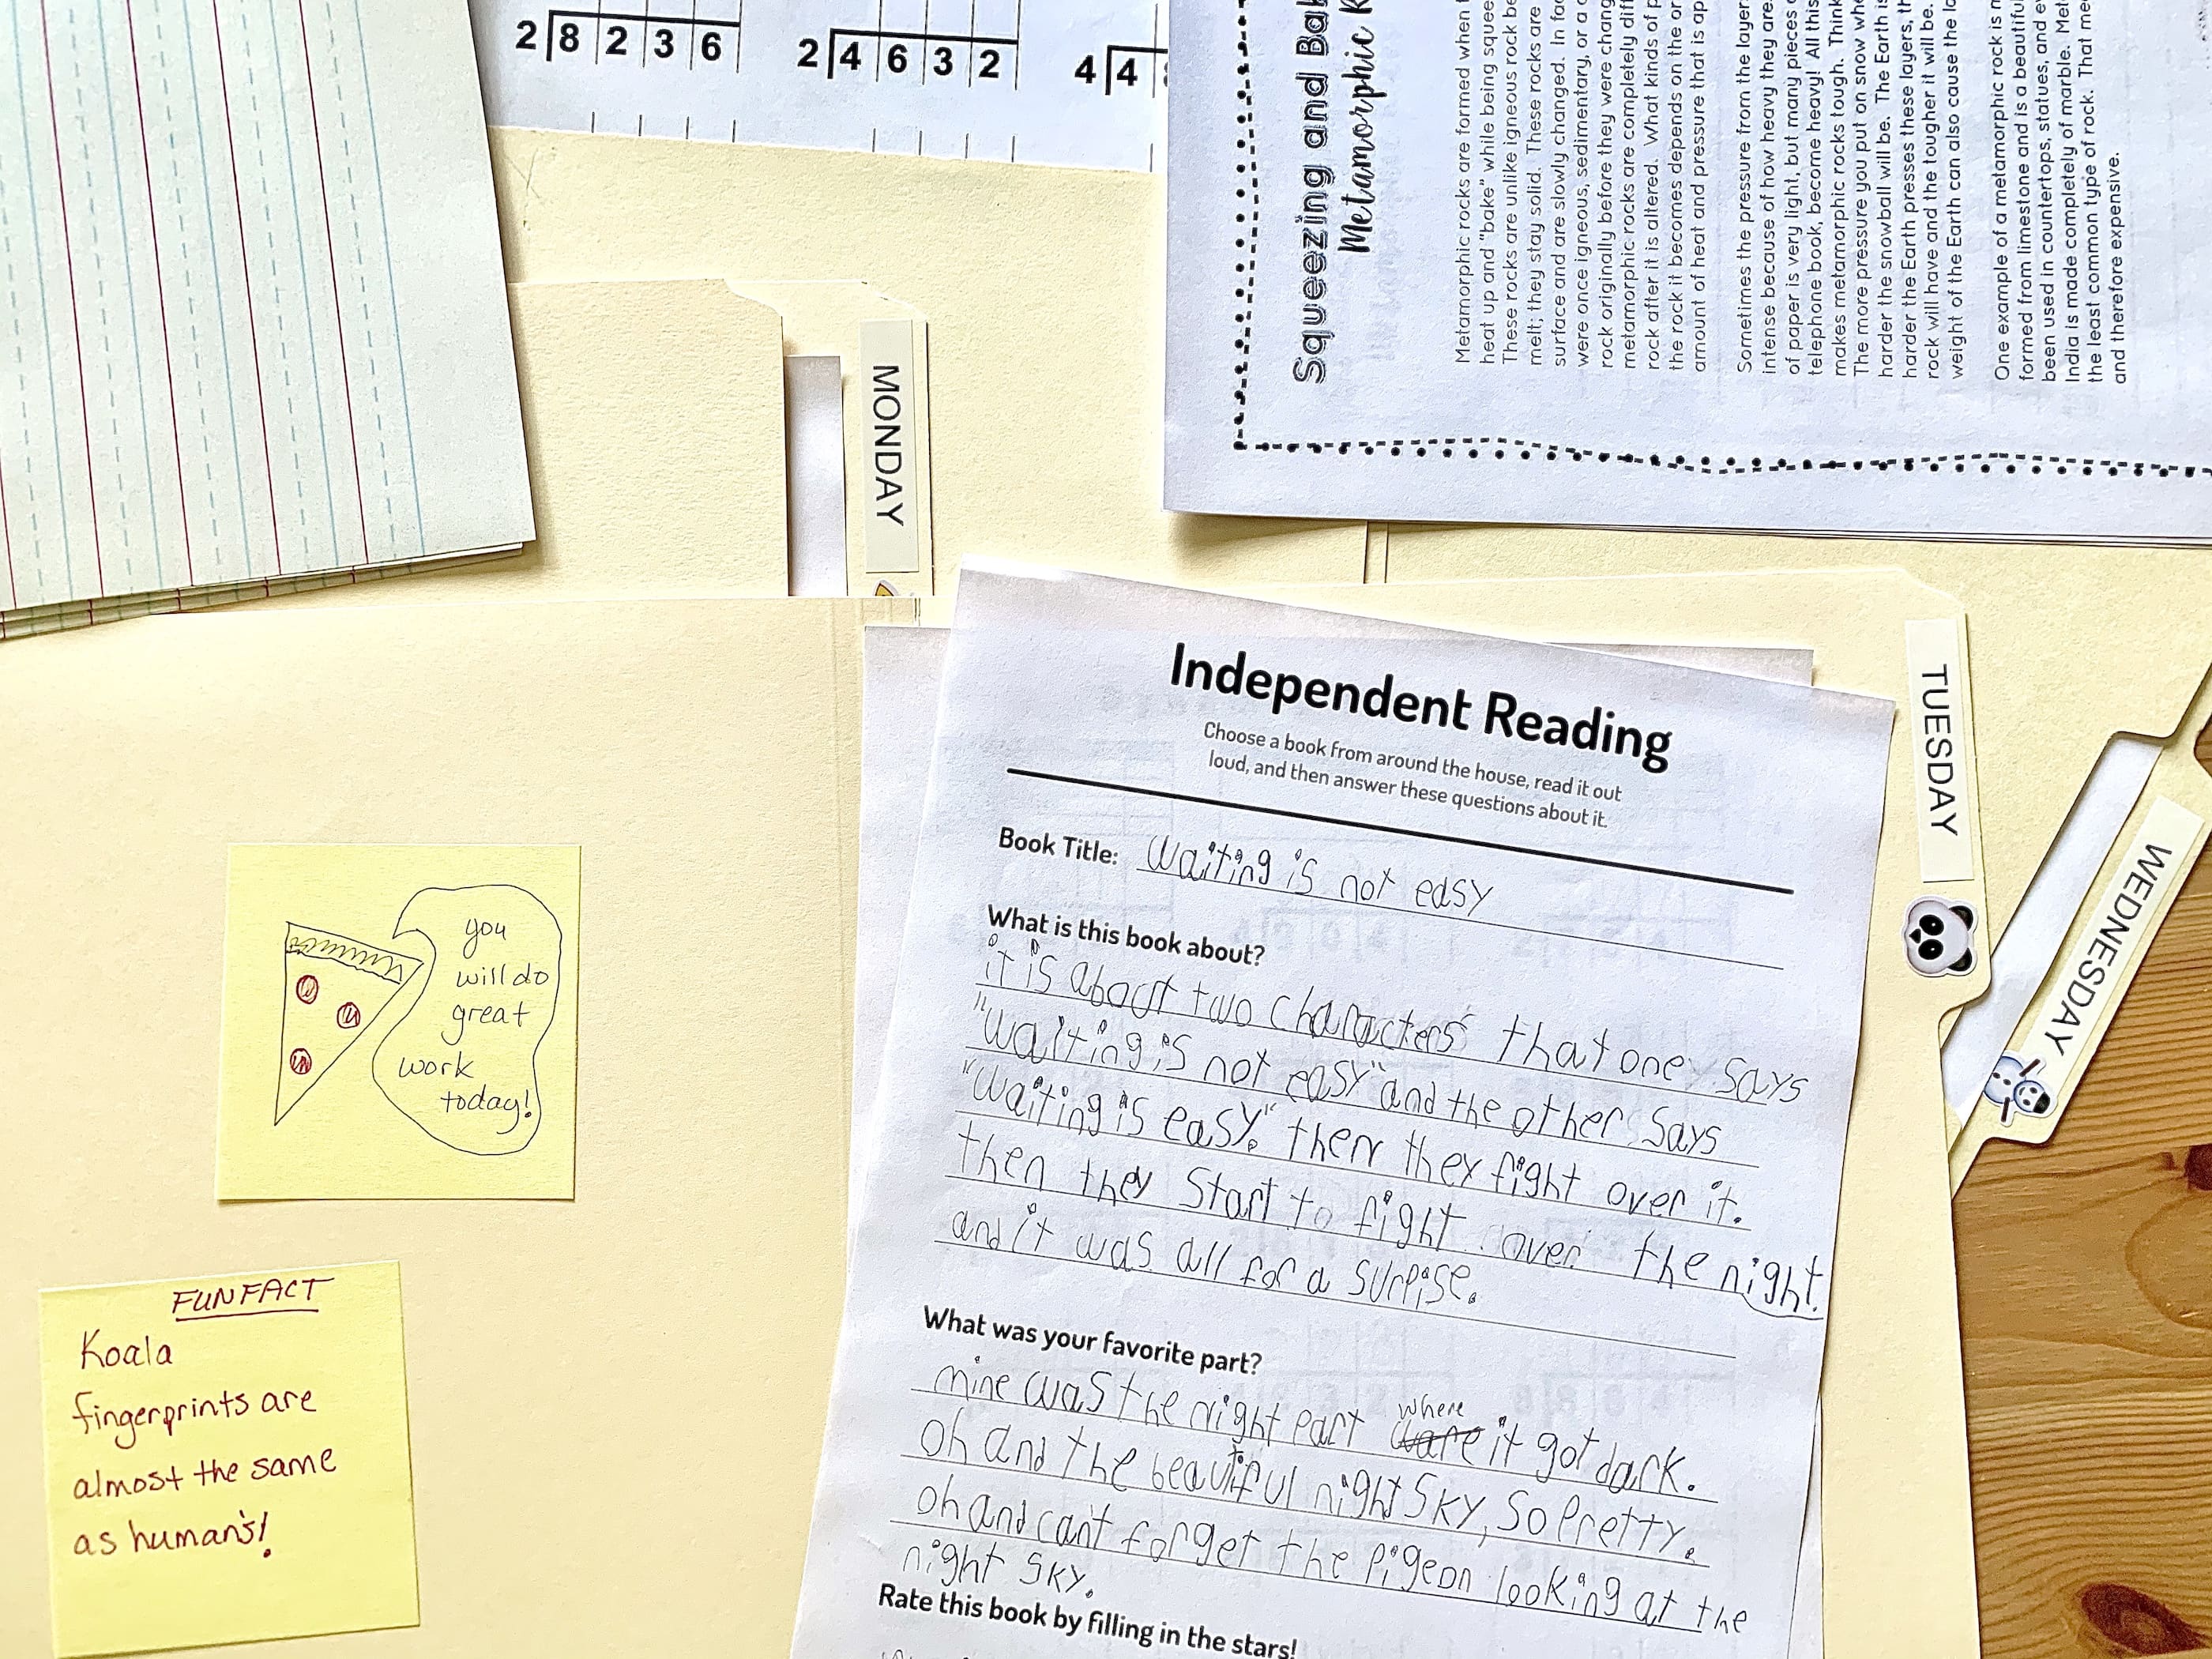 2 8 2 3 6
2 4 6 3 2
4 4
Squeezing and
Metamorphic
Metamorphic rocks are formed when
heat up and "bake" while being
These rocks are unlike igneous rock
melt; they stay solid. These rocks are
surface and are slowly changed. In
were once igneous, sedimentary, or a
rock originally before they were
metamorphic rocks are completely
rock after it is altered. What kinds of
the rock it becomes depends on the
amount of heat and pressure that is
Sometimes the pressure from the
intense because of how heavy they are.
of paper is very light, but many pieces
telephone book, become heavy! All this
makes metamorphic rocks tough. Think
The more pressure you put on snow
harder the snowball will be. The Earth is
harder the Earth presses these layers,
rock will have and the tougher it will be.
weight of the Earth can also cause the
One example of a metamorphic rock is
formed from limestone and is a beautiful
been used in countertops, statues, and
India is made completely of marble.
the least common type of rock. That
and therefore expensive.
MONDAY
TUESDAY
WEDNESDAY
Independent Reading
Choose a book from around the house, read it out
loud, and then answer these questions about it.
Book Title: Waiting is not easy
What is this book about?
it is about two characters that one says
"waiting is not easy" and the other says
"waiting is easy." then they fight over it.
then they start to fight over the night.
and it was all for a surpise.
What was your favorite part?
mine was the night part where it got dark.
oh and the beautiful night sky, so pretty.
oh and can't forget the pigeon looking at the
night sky.
Rate this book by filling in the stars!
you
will do
great
work
today!
FUN FACT
Koala
fingerprints are
almost the same
as human's!